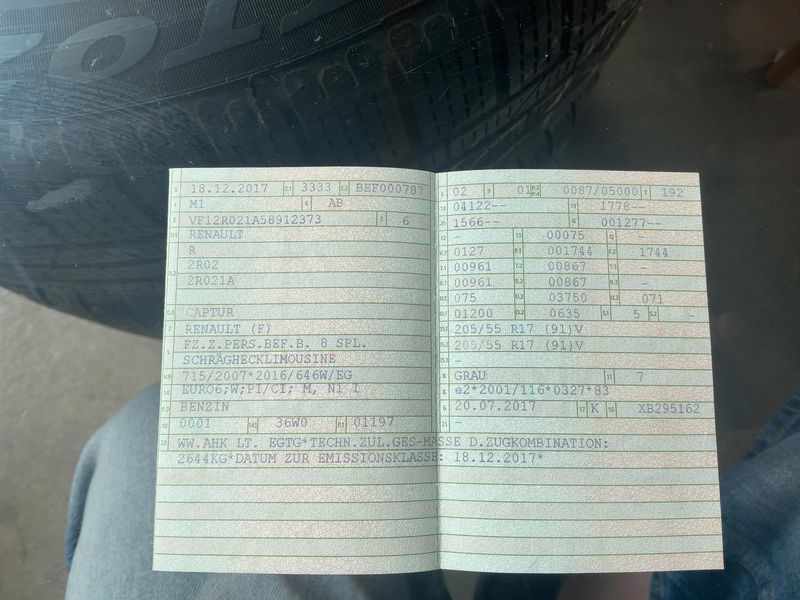 TO
B 18.12.2017 2.1 3333 2.2 BEF000787
J M1 4 AB
E VF12R021A58912373 3 6
D.1 RENAULT
R
2R02
D.2 2R021A
D.3 CAPTUR
2 RENAULT (F)
5 FZ.Z.PERS.BEF.B. 8 SPL.
SCHRÄGHECKLIMOUSINE
V.9 715/2007*2016/646W/EG
14 EURO6;W;PI/CI; M, N1 I
P.3 BENZIN
10 0001 14.1 36W0 P.1 01197
22 WW.AHK LT. EGTG*TECHN.ZUL.GES-MASSE D.ZUGKOMBINATION:
2644KG*DATUM ZUR EMISSIONSKLASSE: 18.12.2017*
L 02 9 01 P.2 P.4 0087/05000 T 192
18 04122-- 19 1778--
20 1566-- G 001277--
12 - 13 00075 Q -
V.7 0127 F.1 001744 F.2 1744
7.1 00961 7.2 00867 7.3 -
8.1 00961 8.2 00867 8.3 -
U.1 075 U.2 03750 U.3 071
O.1 01200 O.2 0635 S.1 5 S.2 -
15.1 205/55 R17 (91)V
15.2 205/55 R17 (91)V
15.3 -
R GRAU 11 7
K e2*2001/116*0327*83
6 20.07.2017 17 K 16 XB295162
21 -